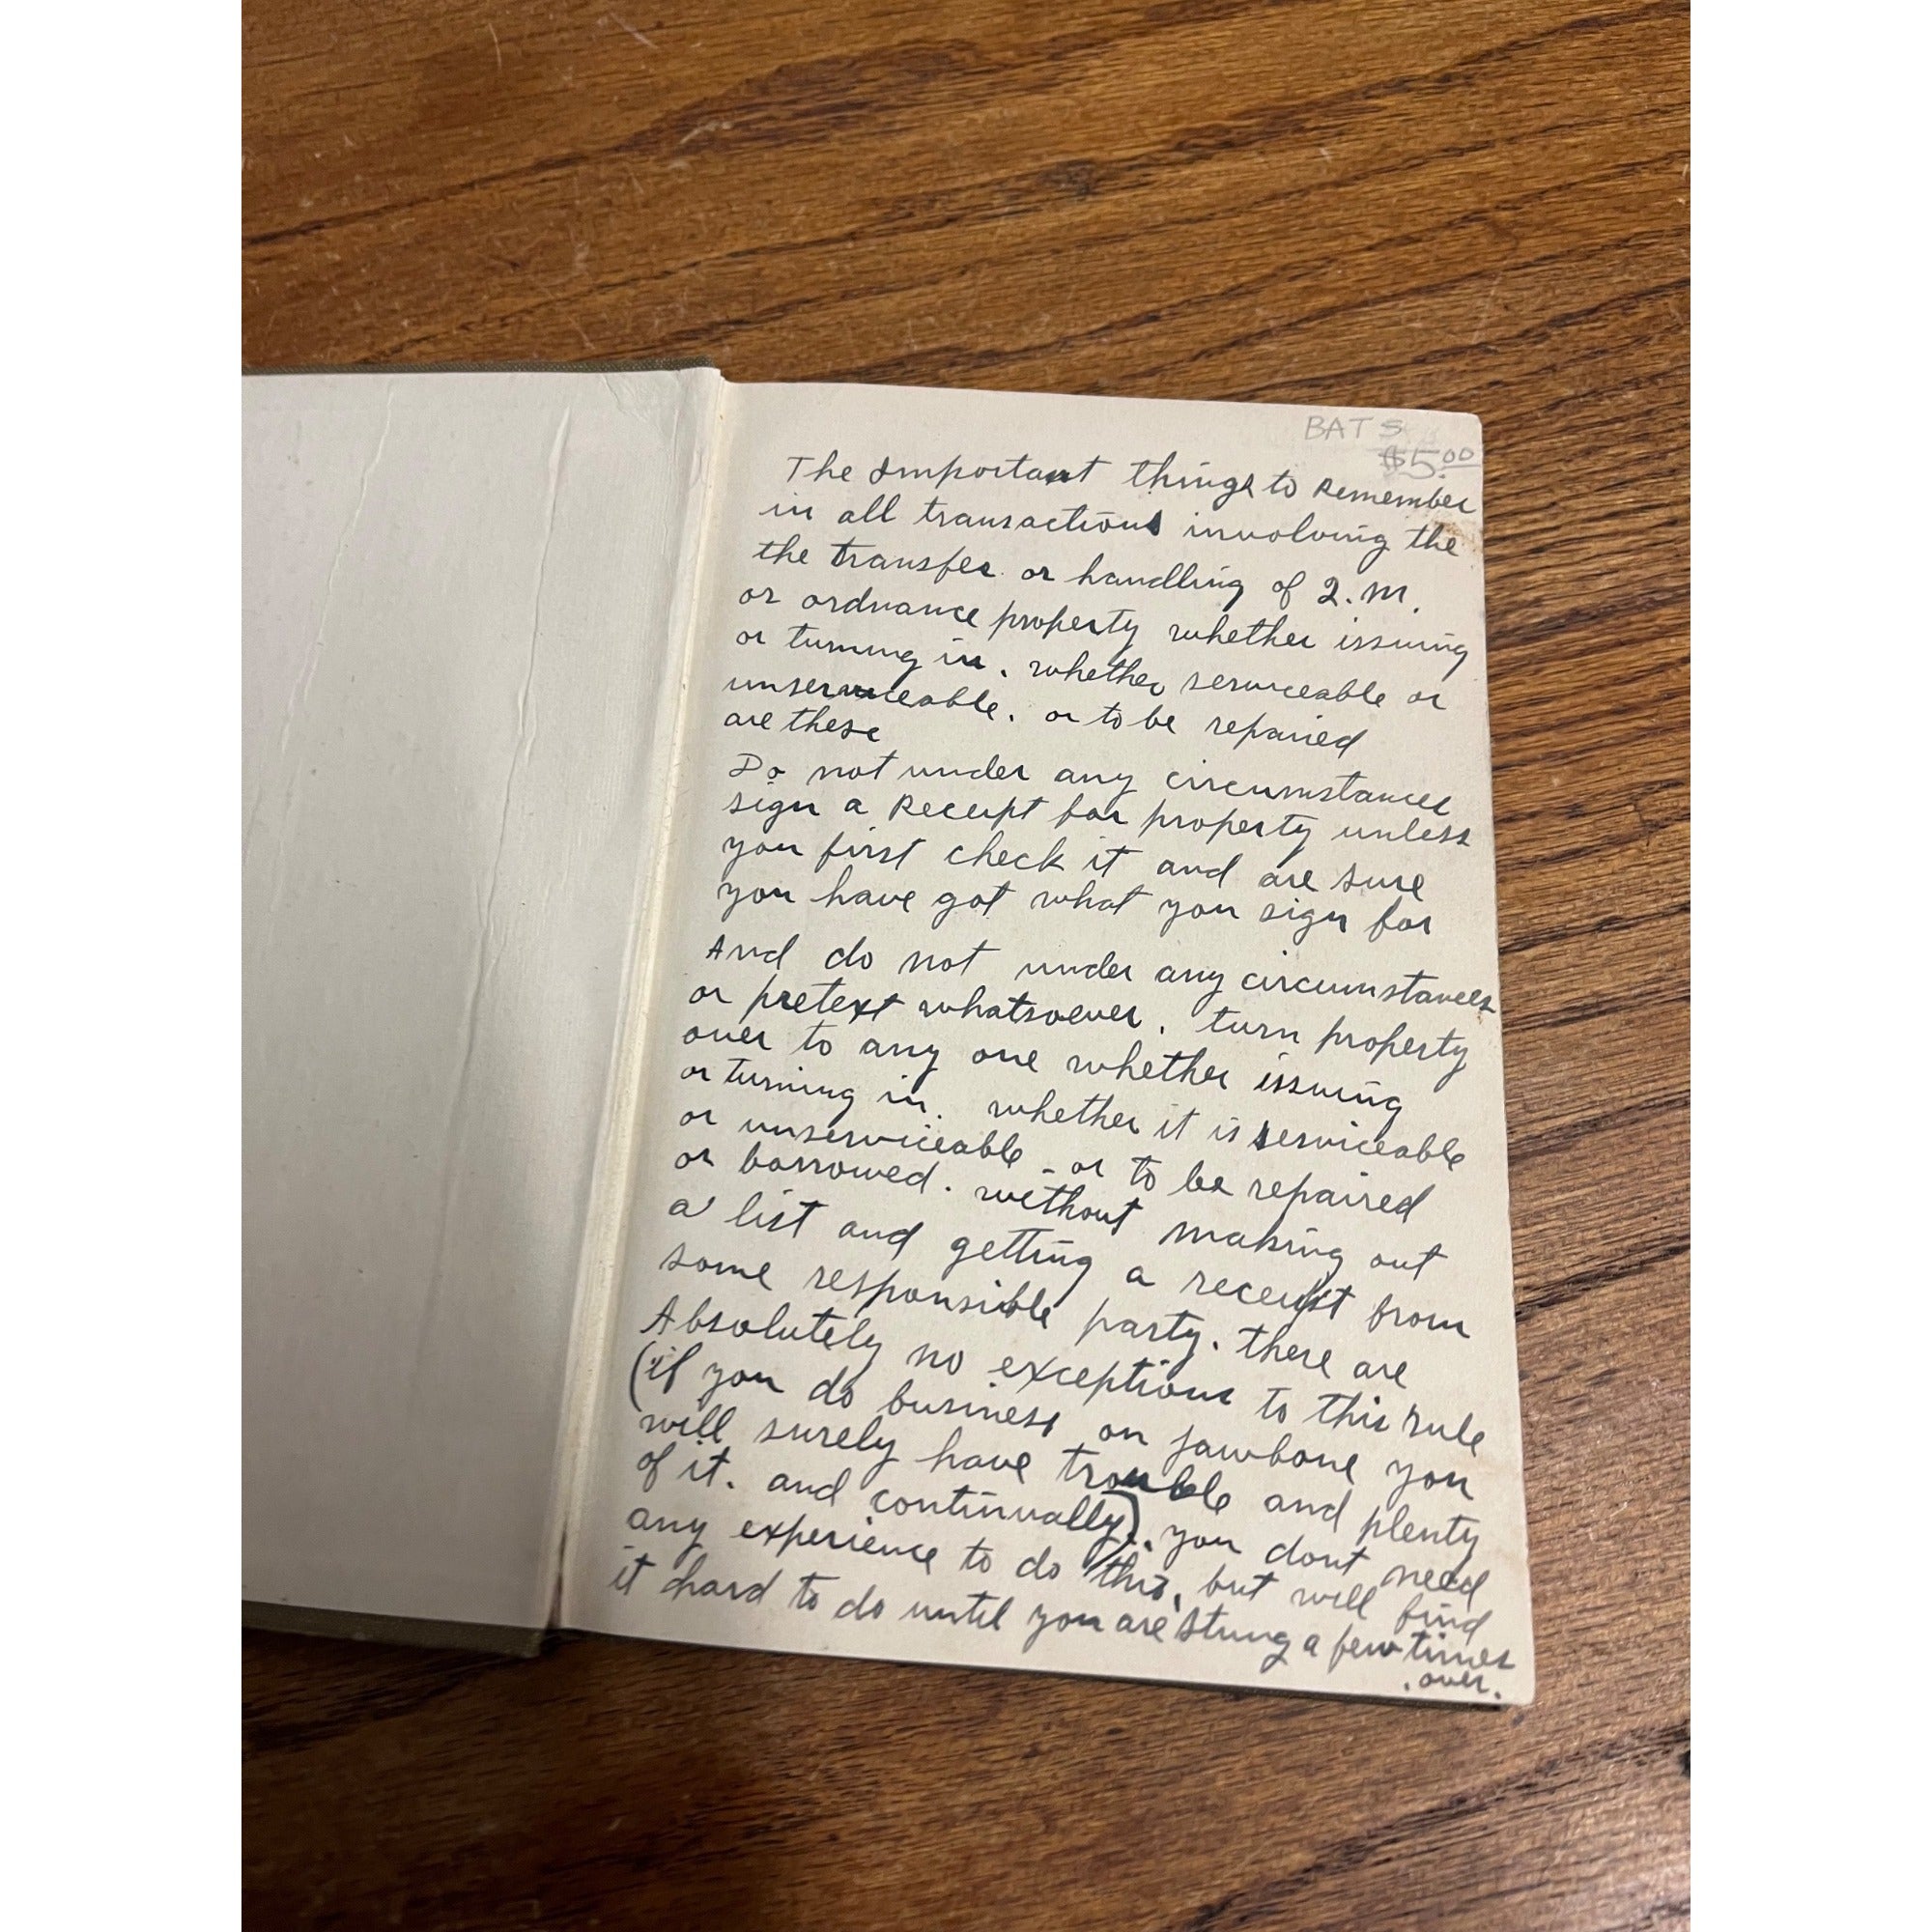 BATS
$5.00
The Important things to Remember
in all transactions involving the
the transfer or handling of Q.M.
or ordnance property whether issuing
or turning in. whether serviceable or
unserviceable. or to be repaired
are these
Do not under any circumstances
sign a Receipt for property unless
you first check it and are sure
you have got what you sign for
And do not under any circumstances
or pretext whatsoever. turn property
over to any one whether issuing
or turning in. whether it is serviceable
or unserviceable - or to be repaired
or borrowed. without making out
a list and getting a receipt from
some responsible party. there are
Absolutely no exceptions to this rule
(if you do business on jawbone you
will surely have trouble and plenty
of it. and continually). you dont need
any experience to do this, but will find
it hard to do until you are stung a few times
.over.